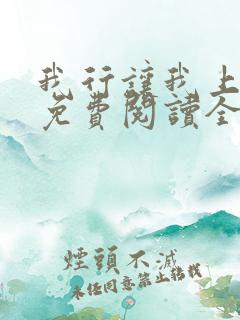 我行讓我上
免費閱讀全
煙頭不滅
未經同意禁止轉載